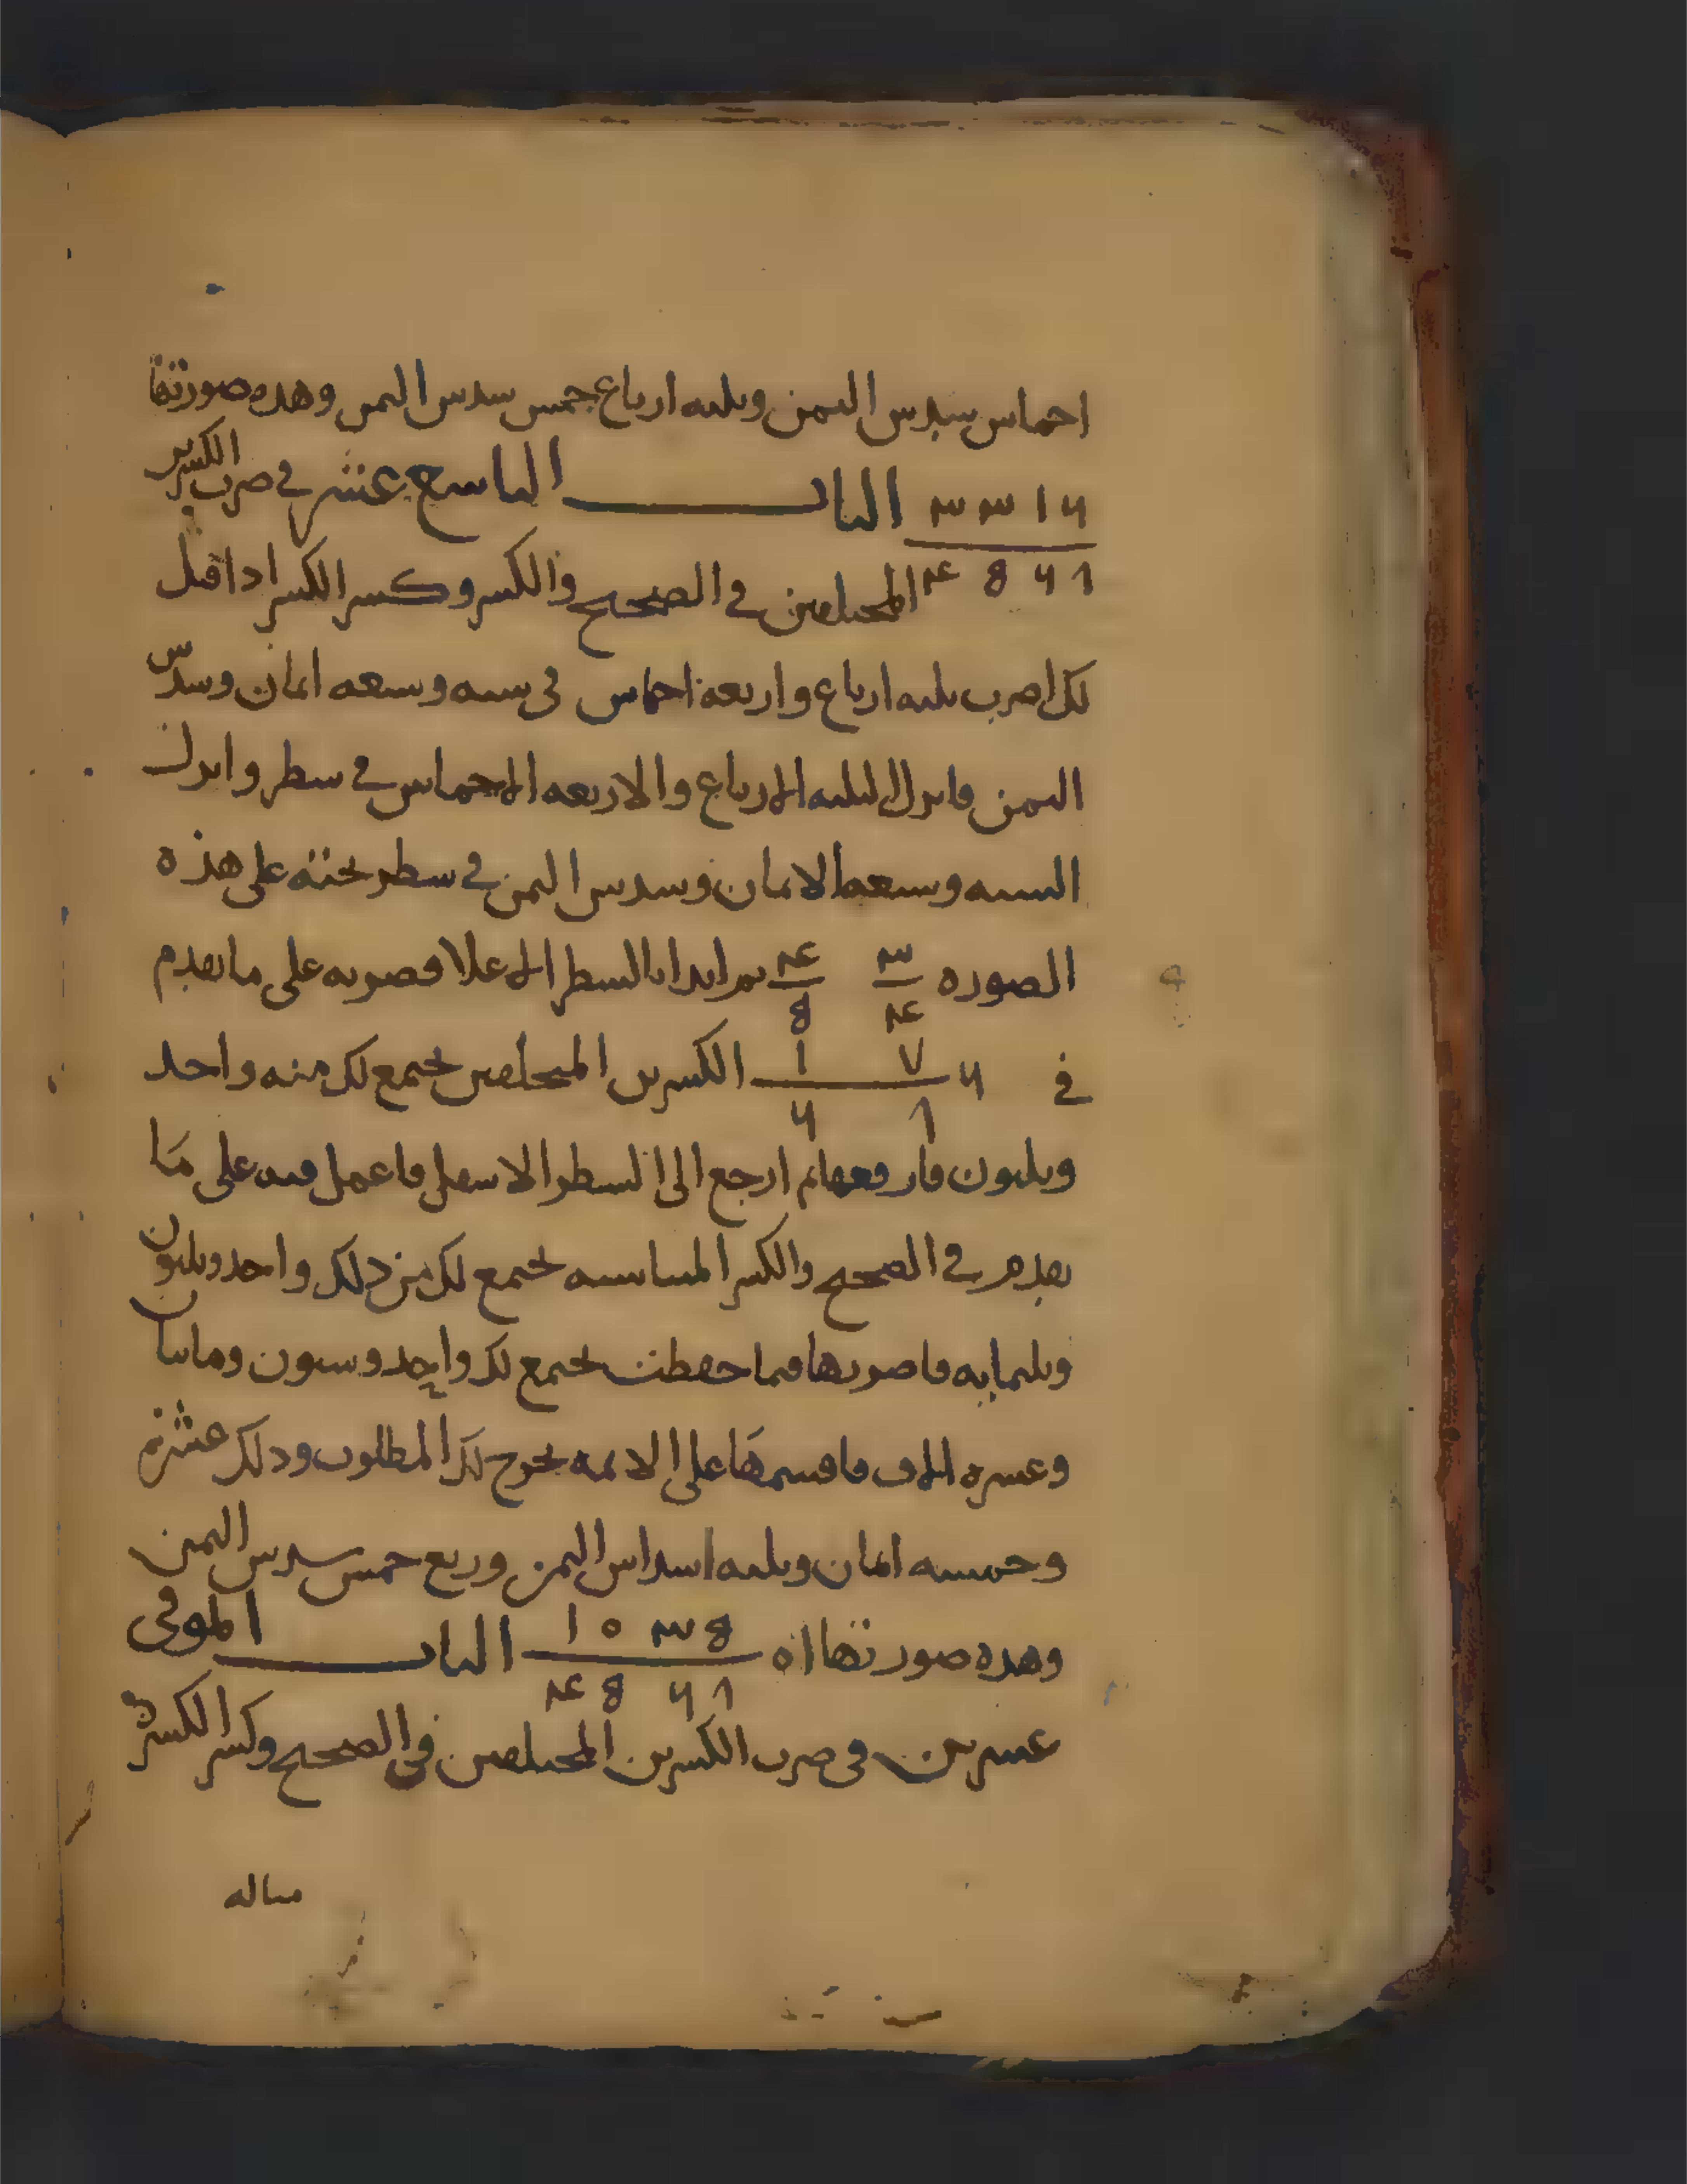 احماس سدس الثمن وثلثه ارباع خمس سدس الثمن وهده صورتها
٦ ١ ٣ ٣ البابــــ التاسع عشر في ضرب الكسرين
٨ ٦ ٥ ٤ المختلفين في الصحيح والكسر وكسر الكسر ادا قيل
لك اضرب ثلثه ارباع واربعة اخماس في سته وسبعه اثمان وسدس
الثمن فانزل الثلثه الارباع والاربعه الاخماس في سطر وانزل
السته وسبعه الاثمان وسدس الثمن في سطر تحته على هذه
الصوره ٣ ٤ ثم ابدا بالسطر الاعلا فضربه على ما تقدم
٤ ٥
في ٦ ٧ ١ الكسرين المختلفين يجتمع لك منه واحد
٨ ٦
وثلثون فارفعها ثم ارجع الى السطر الاسفل فاعمل فيه على مَا
تقدم في الصحيح والكسر المناسبه يجتمع لك من دلك واحد وثلثون
وثلثمايه فاضربها فيما حفظت يجتمع لك واحد وستون ومايتان
وعشره الاف فاقسمهَا على الايمه يخرج لك المطلوب ودلك عشره
وخمسه اثمان وثلثه اسداس الثمن وربع خمس سدس الثمن
وهده صورتها ١٥ ٥ ٣ ٠ ١ البابــــ الموفي
٨ ٦ ٥ ٤
عشرين في ضرب الكسرين المختلفين في الصحيح وكسر الكسر
مثاله